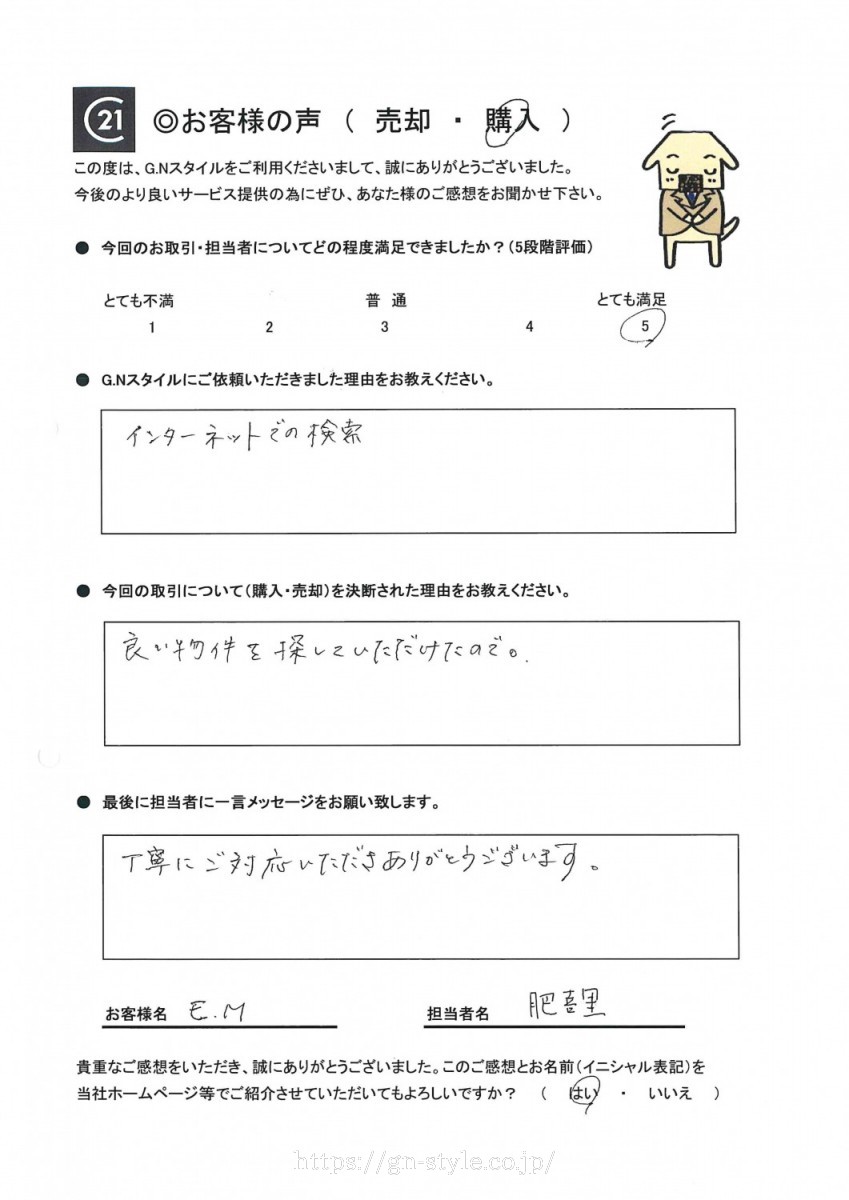 C21 ◎お客様の声 ( 売却 ・ 購入 )
この度は、G.Nスタイルをご利用くださいまして、誠にありがとうございました。
今後のより良いサービス提供の為にぜひ、あなた様のご感想をお聞かせ下さい。
● 今回のお取引・担当者についてどの程度満足できましたか？(5段階評価)
とても不満 普 通 とても満足
1 2 3 4 5
● G.Nスタイルにご依頼いただきました理由をお教えください。
インターネットでの検索
● 今回の取引について(購入・売却)を決断された理由をお教えください。
良い物件を探していただけたので。
● 最後に担当者に一言メッセージをお願い致します。
丁寧にご対応いただきありがとうございます。
お客様名 E.M 担当者名 肥喜里
貴重なご感想をいただき、誠にありがとうございました。このご感想とお名前(イニシャル表記)を
当社ホームページ等でご紹介させていただいてもよろしいですか？ ( はい ・ いいえ )
https://gn-style.co.jp/